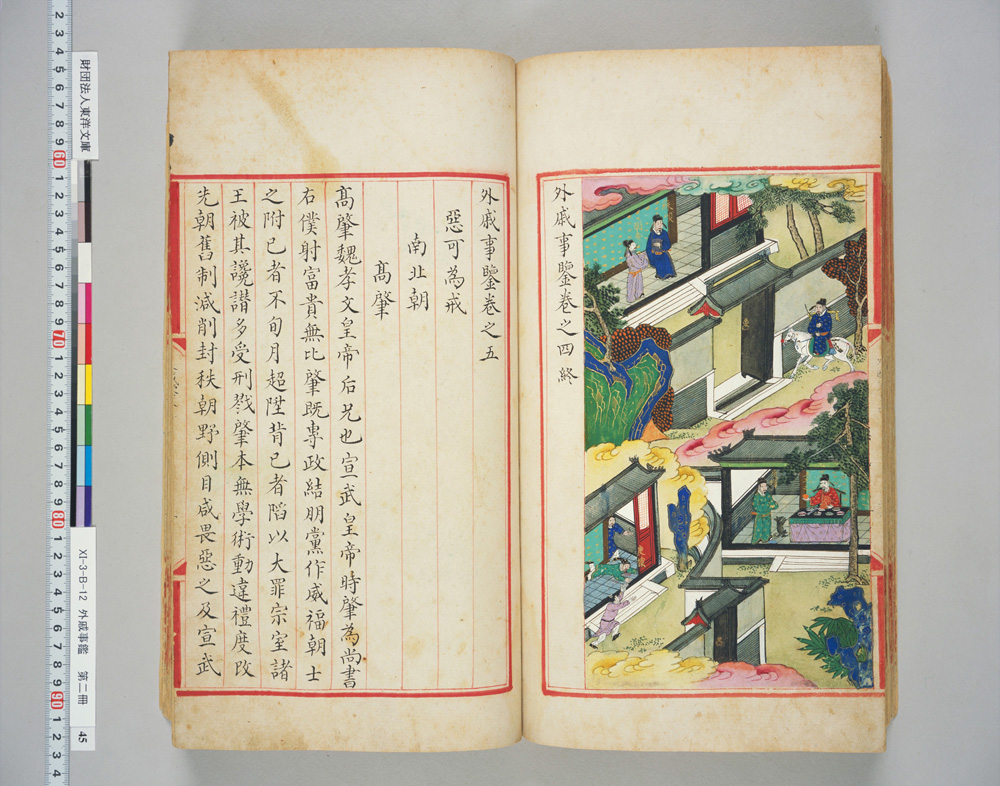 外戚事鑒卷之四終
外戚事鑒卷之五
惡可為戒
南北朝
髙肇
髙肇魏孝文皇帝后兄也宣武皇帝時肇為尚書
右僕射富貴無比肇既專政結朋黨作威福朝士
之附已者不旬月超陞背已者陷以大罪宗室諸
王被其讒譛多受刑戮肇本無學術動違禮度改
先朝舊制減削封秩朝野側目咸畏惡之及宣武
財団法人東洋文庫
XI-3-B-12 外戚事鑑 第二冊
45